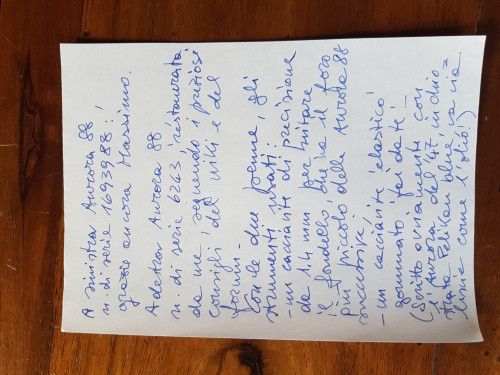 A sinistra Aurora 88
n. di serie 1693988:
grazie ancora Massimo.
A destra Aurora 88
n. di serie 6243 restaurata
da me seguendo i preziosi
consigli del wiki e del
forum.
Con le due penne, gli
strumenti usati:
- un cacciavite di precisione
da 1.4 mm per svitare
il fondello, aveva il foro
più piccolo delle Aurora 88
successive,
- un cacciavite elastico
gommato, fai da te -
(scritto ovviamente con
l'Aurora del '47, inchio=
stro Pelikan blue, va via
liscia come l'olio!)